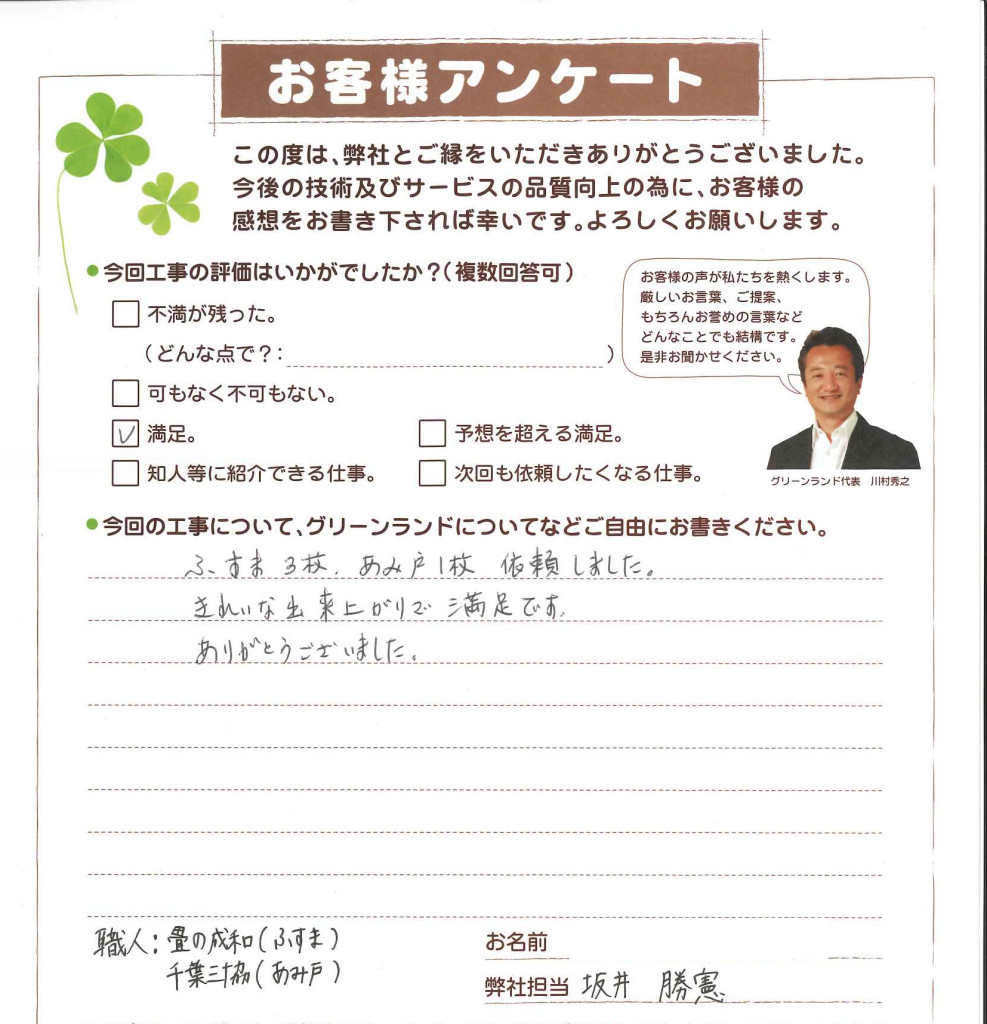 お客様アンケート
この度は、弊社とご縁をいただきありがとうございました。
今後の技術及びサービスの品質向上の為に、お客様の
感想をお書き下されば幸いです。よろしくお願いします。
●今回工事の評価はいかがでしたか?(複数回答可)
不満が残った。
(どんな点で?: )
可もなく不可もない。
満足。
予想を超える満足。
知人等に紹介できる仕事。
次回も依頼したくなる仕事。
お客様の声が私たちを熱くします。
厳しいお言葉、ご提案、
もちろんお誉めの言葉など
どんなことでも結構です。
是非お聞かせください。
グリーンランド代表 川村秀之
●今回の工事について、グリーンランドについてなどご自由にお書きください。
ふすま3枚、あみ戸1枚 依頼しました。
きれいな出来上がりで満足です。
ありがとうございました。
職人:畳の成和(ふすま)
千葉三協(あみ戸)
お名前
弊社担当 坂井 勝憲